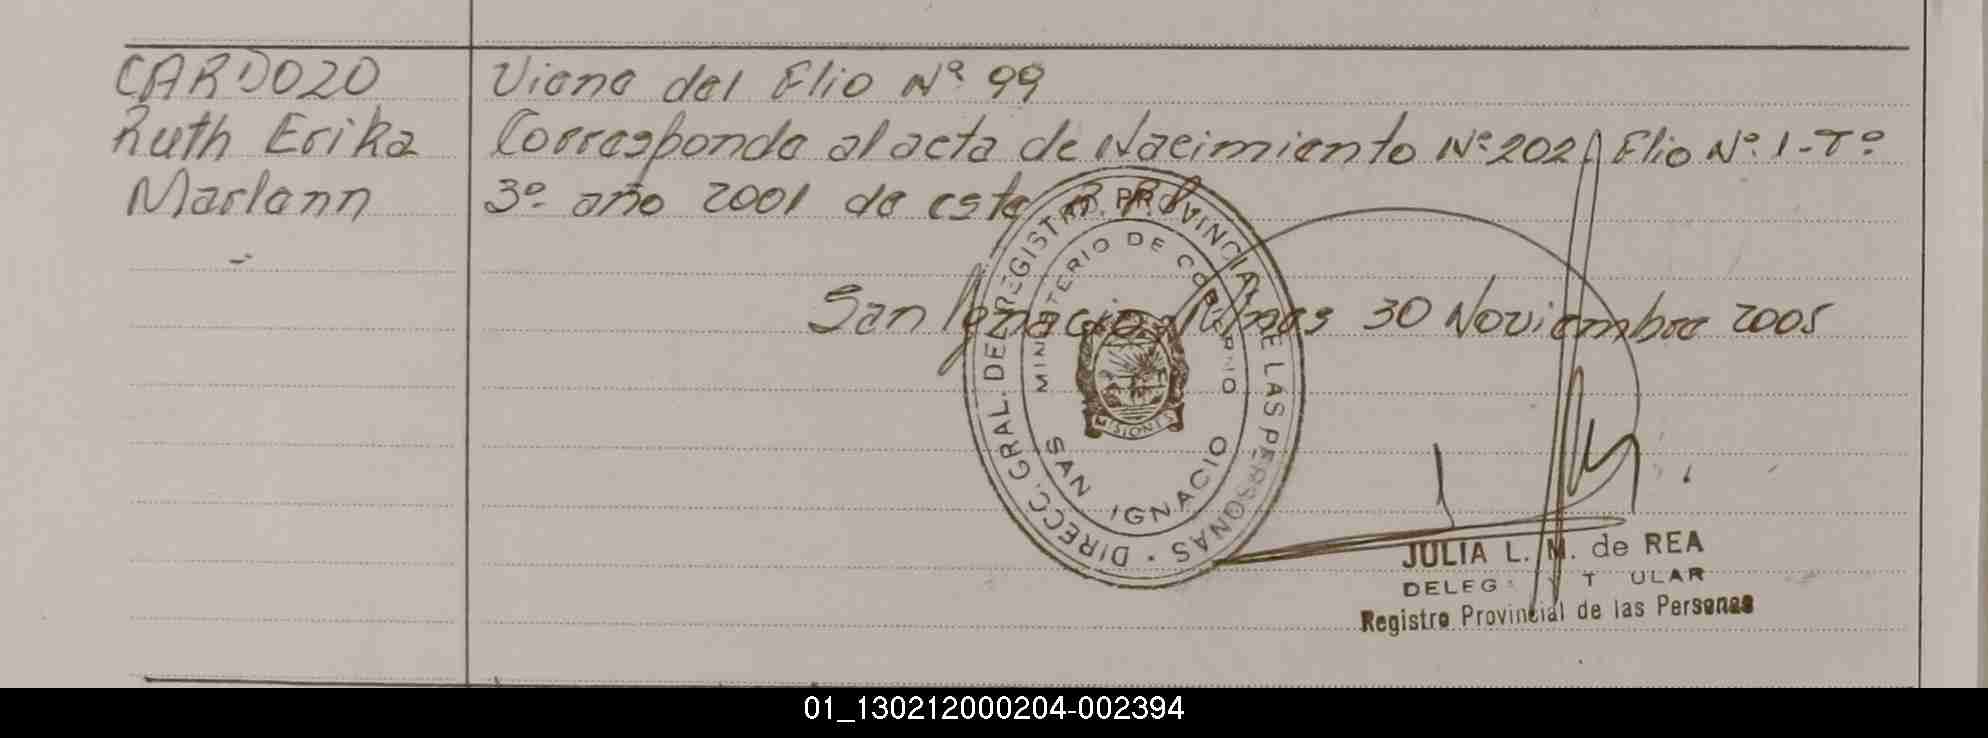 CARDOZO
Ruth Erika
Marlenn
Viene del Flio Nº 99
Corresponde al acta de Nacimiento Nº 202 A Flio Nº 1-Tº
3º año 2001 de este R.P.P.
San Ignacio, Mnes 30 Noviembre 2005
DIRECC. GRAL. DEL REGISTRO PROVINCIAL DE LAS PERSONAS
MINISTERIO DE GOBIERNO
MISIONES
SAN IGNACIO
JULIA L. M. de REA
DELEG T ULAR
Registro Provincial de las Personas
01_130212000204-002394